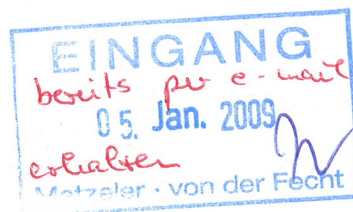 EINGANG
bereits per e-mail
05. Jan. 2009
erhalten
Metzeler · von der Fecht